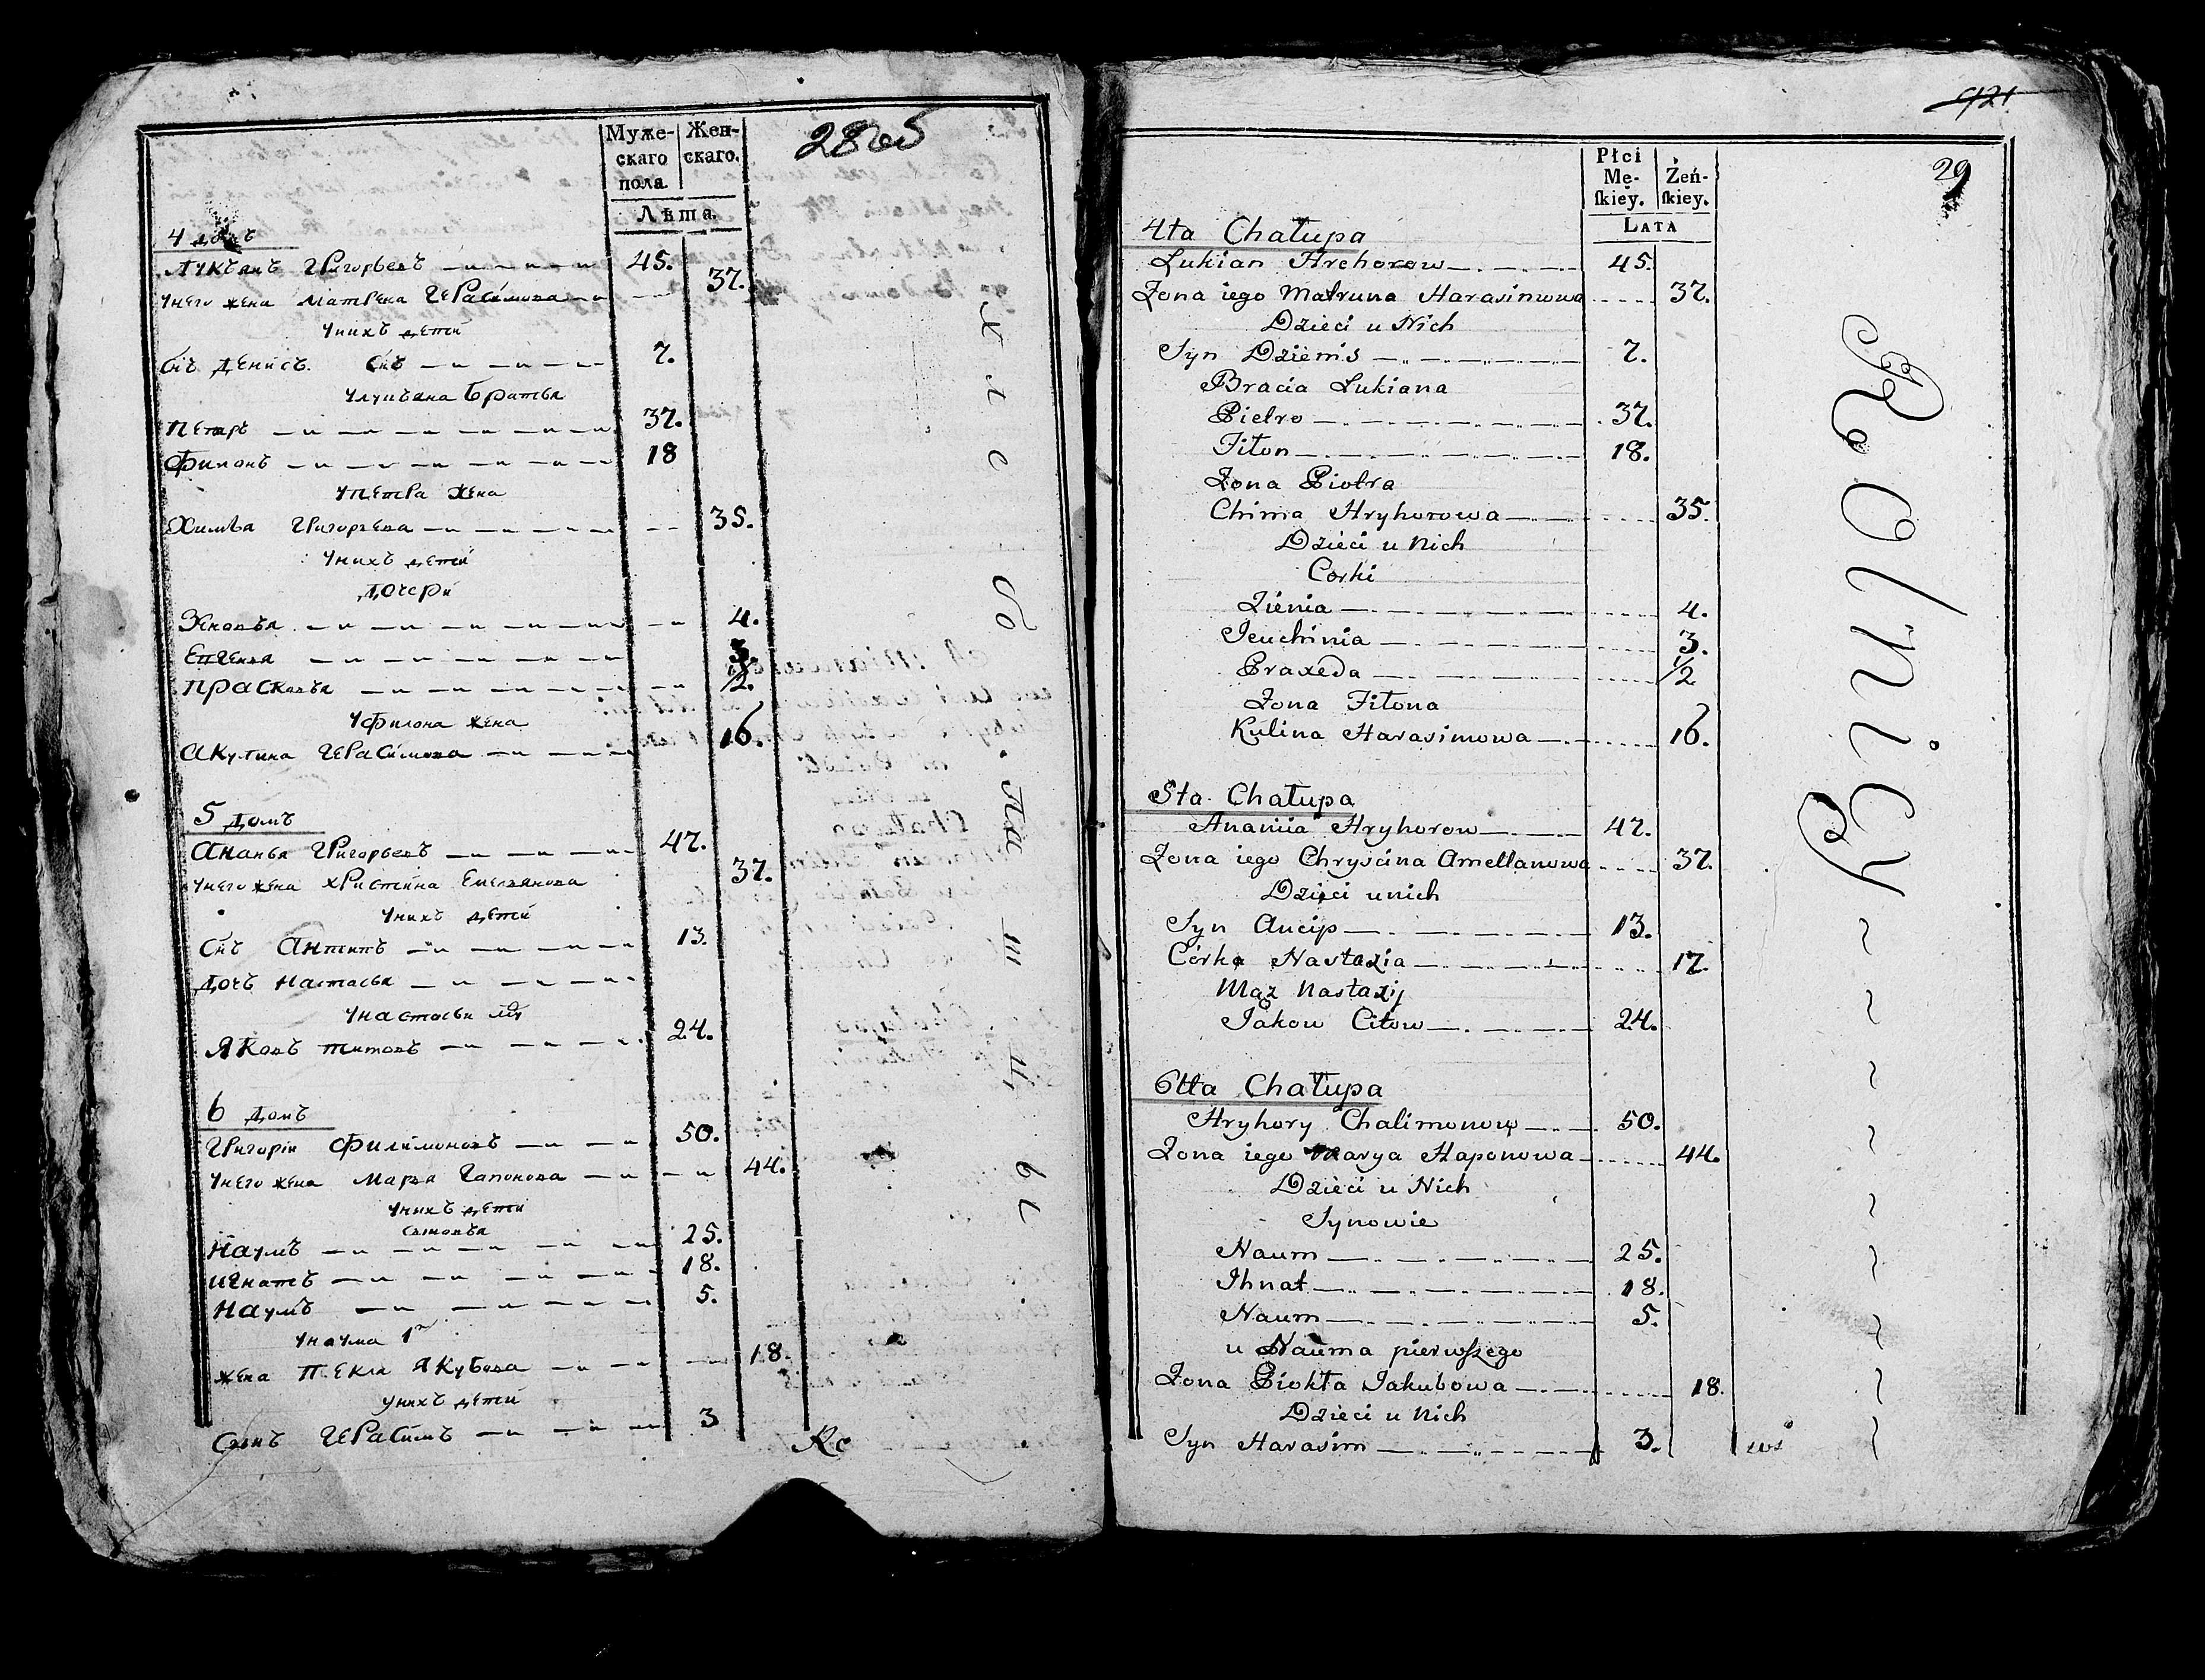 Муже-
скаго
пола.
Жен-
скаго.
Лѣта.
28об
4 домъ
Лукъянъ Григорьевъ 45.
У него жена Матрена Герасимова 37.
У нихъ дети
Сы͠нъ Денисъ 7.
У Лукъяна братья
Петръ 37.
Филонъ 18
У Петра жена
Химъа Григорьева 35.
У нихъ дети
дочери
Зеновъя 4.
Евгенья 3.
Прасковъя 1/2.
У Филона жена
Акулина Герасимова 16.
5 домъ
Ананья Григорьевъ 47.
У него жена Христина Емельянова 37.
У нихъ дети
Сы͠нъ Антипъ 13.
дочь Настасья
У Настасьи
Яковъ Титовъ 24.
6 домъ
Григорiи Филимоновъ 50.
У него жена Марья Гапонова 44.
У нихъ дети
сыновья
Наумъ 25.
Игнатъ 18.
Наумъ 5.
У Наума 1го
жена Пекла Якубова 18.
У нихъ дети
Сынъ Герасимъ 3
Хлебопашцы
Кс
421
29
Płci
Mę-
ſkiey.
Żeń-
ſkiey.
LATA
4ta Chałupa
Lukian Hrehorow 45.
Zona iego Matruna Harasimowa 37.
Dzieci u Nich
Syn Dzienis 7.
Bracia Lukiana
Pietro 37.
Fiłon 18.
Zona Piotra
Chima Hryhorowa 35.
Dzieci u Nich
Corki
Zienia 4.
Jeuchinia 3.
Praxeda 1/2
Zona Fiłona
Kulina Harasimowa 16.
5ta Chałupa
Ananiia Hryhorow 47.
Zona iego Chryscina Amellanowa 37.
Dzieci u nich
Syn Ancip 13.
Córka Nastazia 17.
Mąz Nastazij
Jakow Citow 24.
6tta Chałupa
Hryhory Chalimonow 50.
Zona iego Marya Haponowa 44.
Dzieci u Nich
Synowie
Naum 25.
Ihnat 18.
Naum 5.
u Nauma pierwszego
Zona Piokła Jakubowa 18.
Dzieci u Nich
Syn Harasim 3.
Rolnicy